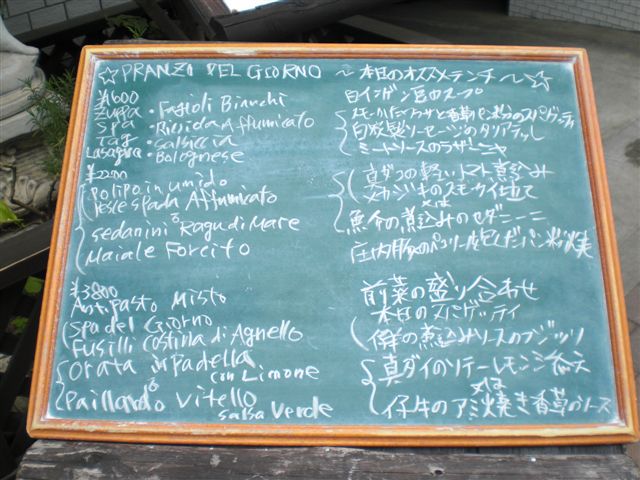 ☆PRANZO DEL GIORNO ～本日のオススメランチ～☆
¥1600
Zuppa・Fagioli Bianchi 白インゲン豆のスープ
Spa・Ricciola Affumicato
Tag・Salsiccia 自家製ソーセージのタリアテッレ
Lasagna・Bolognese ミートソースのラザーニャ
¥2200
Polipo in umido 真ダコの軽いトマト煮込み
Pesce spada Affumicato メカジキのスモーク
又は
sedanini Ragu di Mare 魚介の煮込みのセダニーニ
Maiale Forcito
¥3800
Antipasto Misto 前菜の盛り合わせ
Spa del Giorno 本日のスパゲッティ
Fusilli costina di Agnello 仔羊の煮込みソースのフジッリ
Orata in Padella 真ダイのソテーレモン添え
con Limone
o 又は
Paillardo Vitello 仔牛のアミ焼き香草のソース
salsa verde